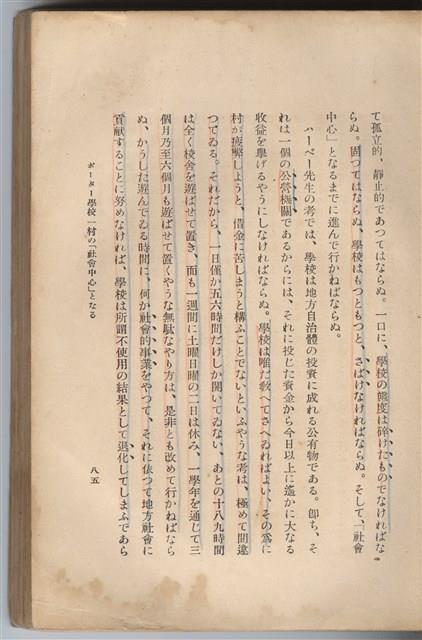 て孤立的、靜止的であつてはならぬ。一口に、學校の態度は碎けたものでなければな
らぬ。固つてはならぬ、學校はもつともつと、さばけなければならぬ。そして、「社會
中心」となるまでに進んで行かねばならぬ。
ハーベー先生の考では、學校は地方自治體の投資に成れる公有物である。卽ち、そ
れは一個の公營機關であるからには、それに投じた資金から今日以上に遙かに大なる
收益を擧げるやうにしなければならぬ。學校は唯だ敎へてさへゐればよい、その爲に
村が疲弊しようと、借金に苦しまうと構ふことでないといふやうな考は、極めて間違
つてゐる。それだから、一日僅か五六時間だけしか開いてゐない、あとの十八九時間
は全く校舍を遊ばせて置き、而も一週間に土曜日曜の二日は休み、一學年を通じて三
個月乃至六個月も遊ばせて置くやうな無駄なやり方は、是非とも改めて行かねばなら
ぬ、かうした遊んでゐる時間に、何か社會的事業をやつて、それに依つて地方社會に
貢献することに努めなければ、學校は所謂不使用の結果として退化してしまふであら
ポーター學校一村の「社會中心」となる
八五